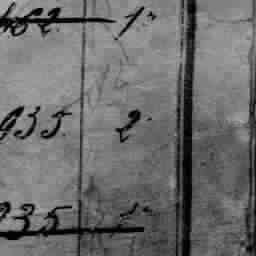 462 1"
935 2"
935 1"